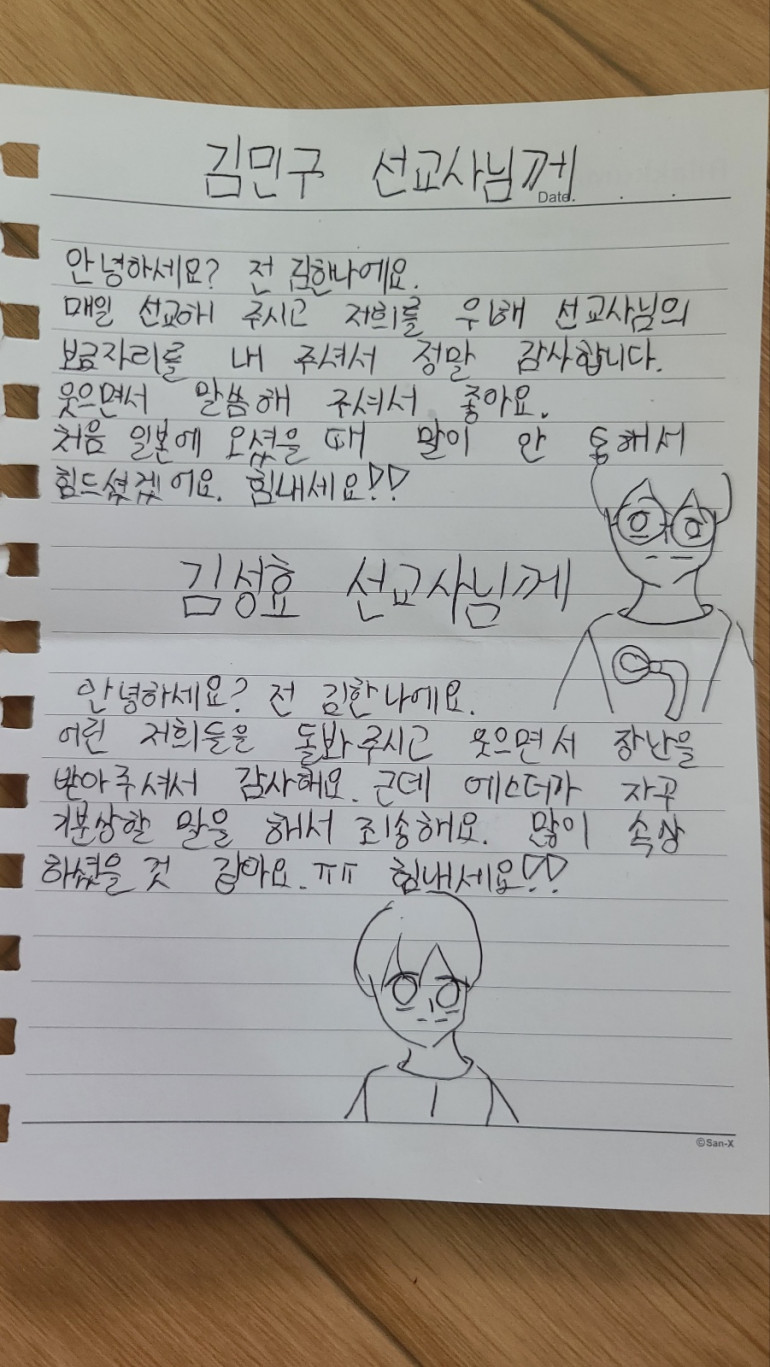 김민구 선교사님께
Date.
안녕하세요? 전 김한나에요.
매일 선교해 주시고 저희를 위해 선교사님의
보금자리를 내 주셔서 정말 감사합니다.
웃으면서 말씀해 주셔서 좋아요.
처음 일본에 오셨을 때 말이 안 통해서
힘드셨겠어요. 힘내세요!!
김성효 선교사님께
안녕하세요? 전 김한나에요.
어린 저희들을 돌봐주시고 웃으면서 장난을
받아주셔서 감사해요. 근데 에스더가 자꾸
기분상한 말을 해서 죄송해요. 많이 속상
하셨을 것 같아요.ㅠㅠ 힘내세요!!
©San-X